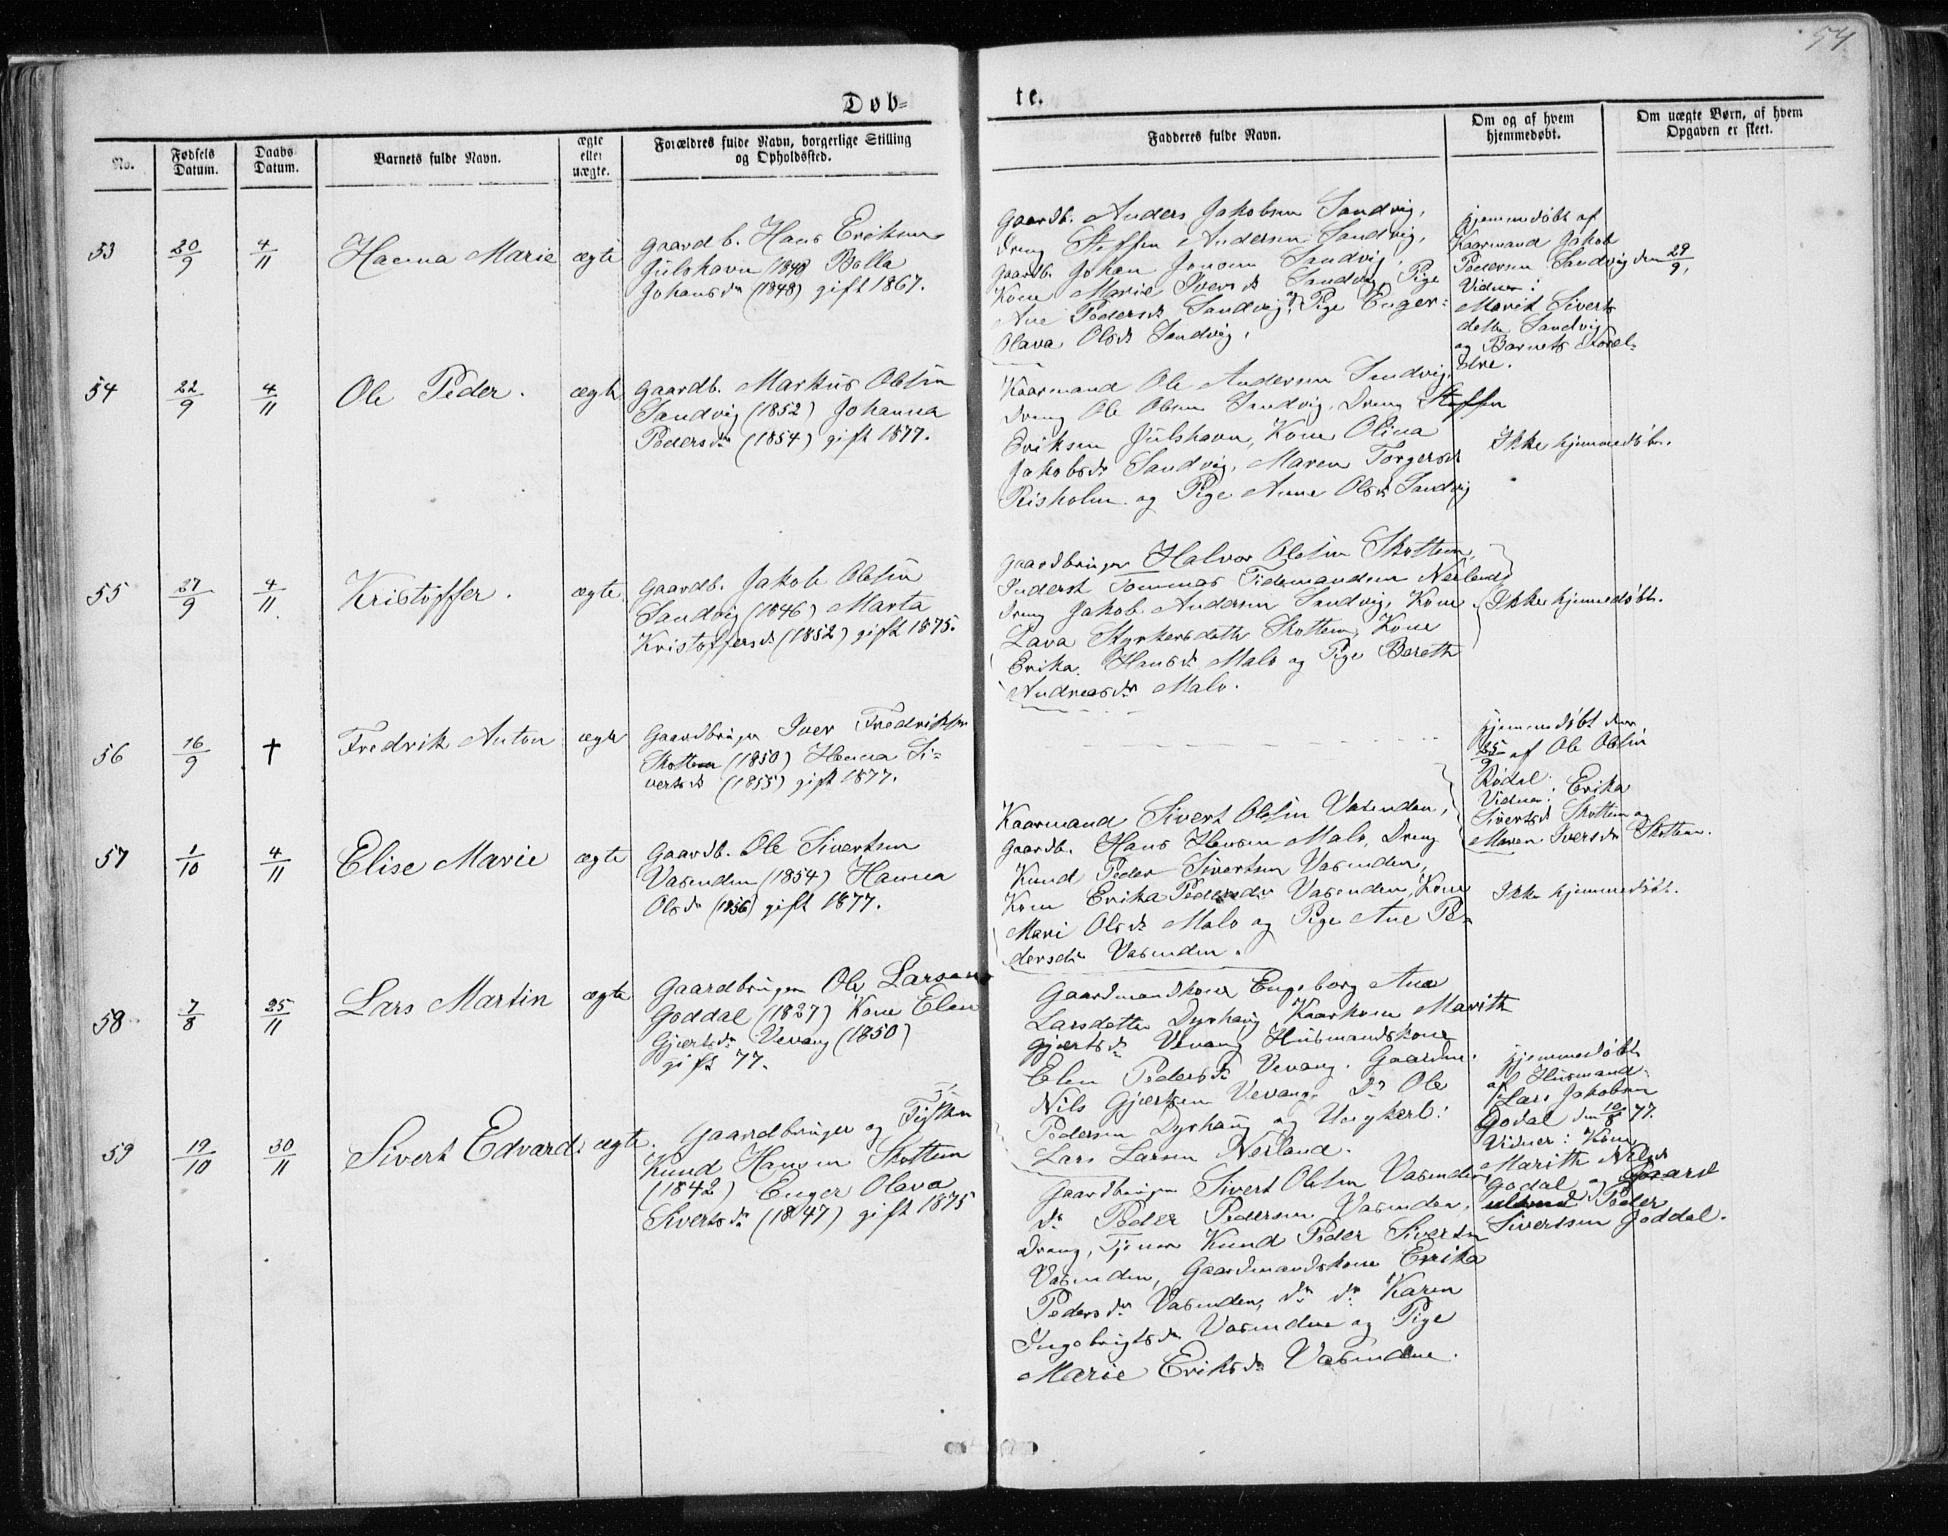 54
Døb=
te.
No.
Fødsels Datum.
Daabs Datum.
Barnets fulde Navn.
ægte eller uægte.
Forældres fulde Navn, borgerlige Stilling
og Opholdssted.
Fadderes fulde Navn.
Om og af hvem
hjemmedøbt.
Om uægte Børn, af hvem
Opgaven er skeet.
53 20/9 4/11 Hanna Marie ægte
Gaardb. Hans Eriksen
Julshavn (1848)
Johansdr (1848) gift 1867.
Gaardb. Anders Jakobsen Sandvig,
Dreng Steffen Andersen Sandvig,
Gaardb. Johan Jonsen Sandvig,
Kone Marie Iversdr Sandvig, Pige
Ane Pedersdr Sandvig, og Pige Enger=
Olava Olsdr Sandvig.
Hjemmedøbt af
Kaarmand Jakob
Pedersen Sandvig den 29/9,
Vidner:
Marit Siverts
datter Sandvig
og Barnets Foræl-
dre.
54 22/9 4/11 Ole Peder. ægte
Gaardb. Markus Olsen
Sandvig (1852) Johanna
Pedersdr (1854) gift 1877.
Kaarmand Ole Andersen Sandvig,
Dreng Ole Olsen Sandvig, Dreng Steffen
Eriksen Julshavn, Kone Olina
Jakobsdr Sandvig, Maren Torgersdr
Risholm og Pige Anne Olsdr Sandvig
Ikke hjemmedøbt.
55 27/9 4/11 Kristoffer. ægte
Gaardb. Jakob Olsen
Sandvig (1846) Marta
Kristoffersdr (1852) gift 1875.
Gaardbruger Halvor Olsen Skottem,
Inderst Tommas Tidemandsen Nerland,
Dreng Jakob Andersen Sandvig, Kone
Lava Styrkersdatter Skottem, Kone
Erika Hansdr Malo og Pige Bereth
Andreasdr Malo.
Ikke hjemmedøbt.
56 16/9 † Fredrik Anton ægte
Gaardbruger Iver Fredriksen
Skottem (1850) Hanna Si=
vertsdr (1855) gift 1877.
Hjemmedøbt den
25/9 af Ole Olsen
Rødal.
Vidner: Erika
Sivertsdr Skottem og
Maren Iversdr Skottem.
57 1/10 4/11 Elise Marie ægte
Gaardb. Ole Sivertsen
Vasenden (1854) Hanna
Olsdr (1856) gift 1877.
Kaarmand Sivert Olsen Vasenden,
Gaardb. Hans Hansen Malo, Dreng
Knud Peder Sivertsen Vasenden,
Kone Erika Pedersdr Vasenden, Kone
Mari Olsdr Malo og Pige Ane Pe=
dersdr Vasenden.
Ikke hjemmedøbt.
58 7/8 25/11 Lars Martin ægte
Gaardbruger Ole Larsen
Goddal (1827) Kone Elen
Gjertsdr Vevang (1850)
gift 77.
Gaardmandskone Engeborg Ane
Larsdatter Dyrhaug, Kaarkone Marith
Gjertsdr Vevang Husmandskone
Elen Pedersdr Vevang. Gaardm.
Nils Gjertsen Vevang, Do Ole
Pedersen Dyrhaug og Ungkarl:
Lars Larsen Nerland.
Hjemmedøbt
af Husmand
Lars Jakobsen
Godal den 10/8 77.
Vidner: Kone
Marith Nilsdr
Godal og Gaard
Peder
Sivertsen Goddal.
59 19/10 30/11 Sivert Edvard ægte.
Gaardbruger og Fisker
Knud Hansen Skottem
(1842) Enger Olava
Sivertsdr (1847) gift 1875
Gaardbruger Sivert Olsen Vasenden
do Peder Pedersen Vasenden,
Dreng, Tjener Knud Peder Sivertsen
Vasenden, Gaardmandskone Erika
Pedersdr Vasenden, do do Karen
Ingebrigtsdr Vasenden og Pige
Marie Eriksdr Vasenden.